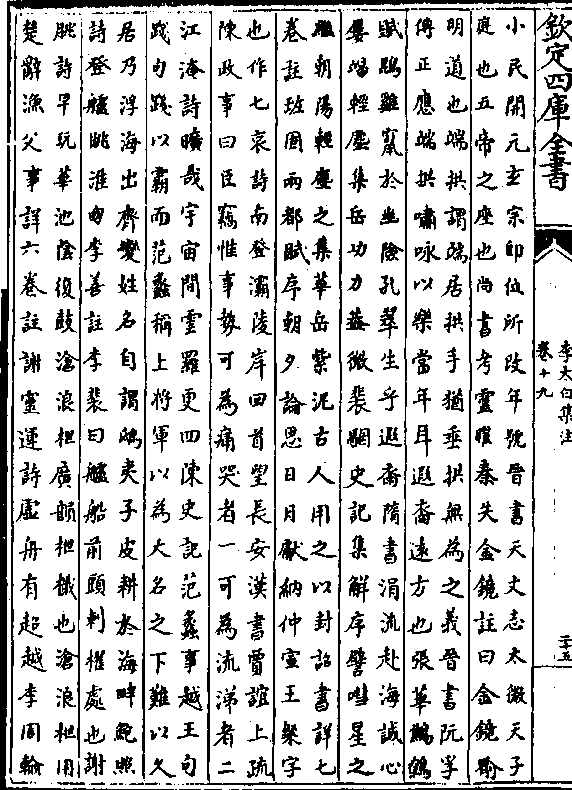 欽定四庫全書
李太白集注
卷十九
二十五
小民開元玄宗即位所改年號晉書天文志太微天子
庭也五帝之座也尚書考靈曜秦失金鏡註曰金鏡喻
明道也端拱謂端居拱手猶垂拱無為之義晉書阮孚
傳正應端拱嘯咏以樂當年耳遐裔遠方也張華鷦鷯
賦鵰雖竄於幽險孔翠生乎遐裔隋書涓流赴海誠心
屢竭輕塵集岳功力葢微裴駰史記集解序譬嘒星之
繼朝陽輕塵之集華岳紫泥古人用之以封詔書詳七
卷註班固兩都賦序朝夕論思日月獻納仲宣王粲字
也作七哀詩南登灞陵岸回首望長安漢書賈誼上疏
陳政事曰臣竊惟事勢可為痛哭者一可為流涕者二
江淹詩曠哉宇宙間雲羅更四陳史記范蠡事越王句
踐句踐以霸而范蠡稱上將軍以為大名之下難以久
居乃浮海出齊變姓名自謂鴟夷子皮耕於海畔鮑照
詩登艫眺淮甸李善註李裴曰艫船前頭刺櫂處也謝
眺詩早玩華池陰復鼓滄浪枻廣韻枻檝也滄浪枻用
楚辭漁父事詳六卷註謝靈運詩虛舟有超越李周翰